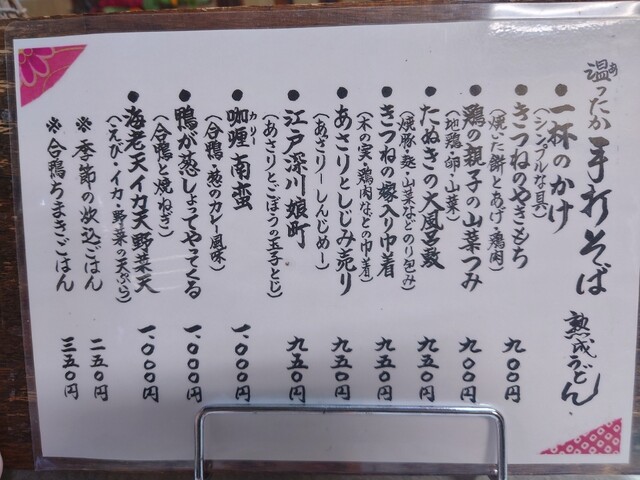 温ったか手打そば 熟成うどん
あ
●一杯のかけ
(シンプルな具)
●きつねのやきもち 九〇〇円
(焼いた餅とあげ・鶏肉)
●鶏の親子の山菜つみ 九〇〇円
(地鶏・卵・山菜)
●たぬきの大風呂敷 九五〇円
(焼豚・麩・山菜などのり包み)
●きつねの嫁入り巾着 九五〇円
(木の実・鶏肉などの巾着)
●あさりとしじみ売り 九五〇円
(あさりーしんじめー)
●江戸深川娘町 九五〇円
(あさりとごぼうの玉子とじ)
●咖喱南蛮 一、〇〇〇円
カリー
(合鴨、葱のカレー風味)
●鴨が葱しょってやってくる 一、〇〇〇円
(合鴨と焼ねぎ)
●海老天イカ天野菜天 一、〇〇〇円
(えび・イカ・野菜の天ぷら)
※季節の炊込ごはん 二五〇円
※合鴨ちまきごはん 三五〇円